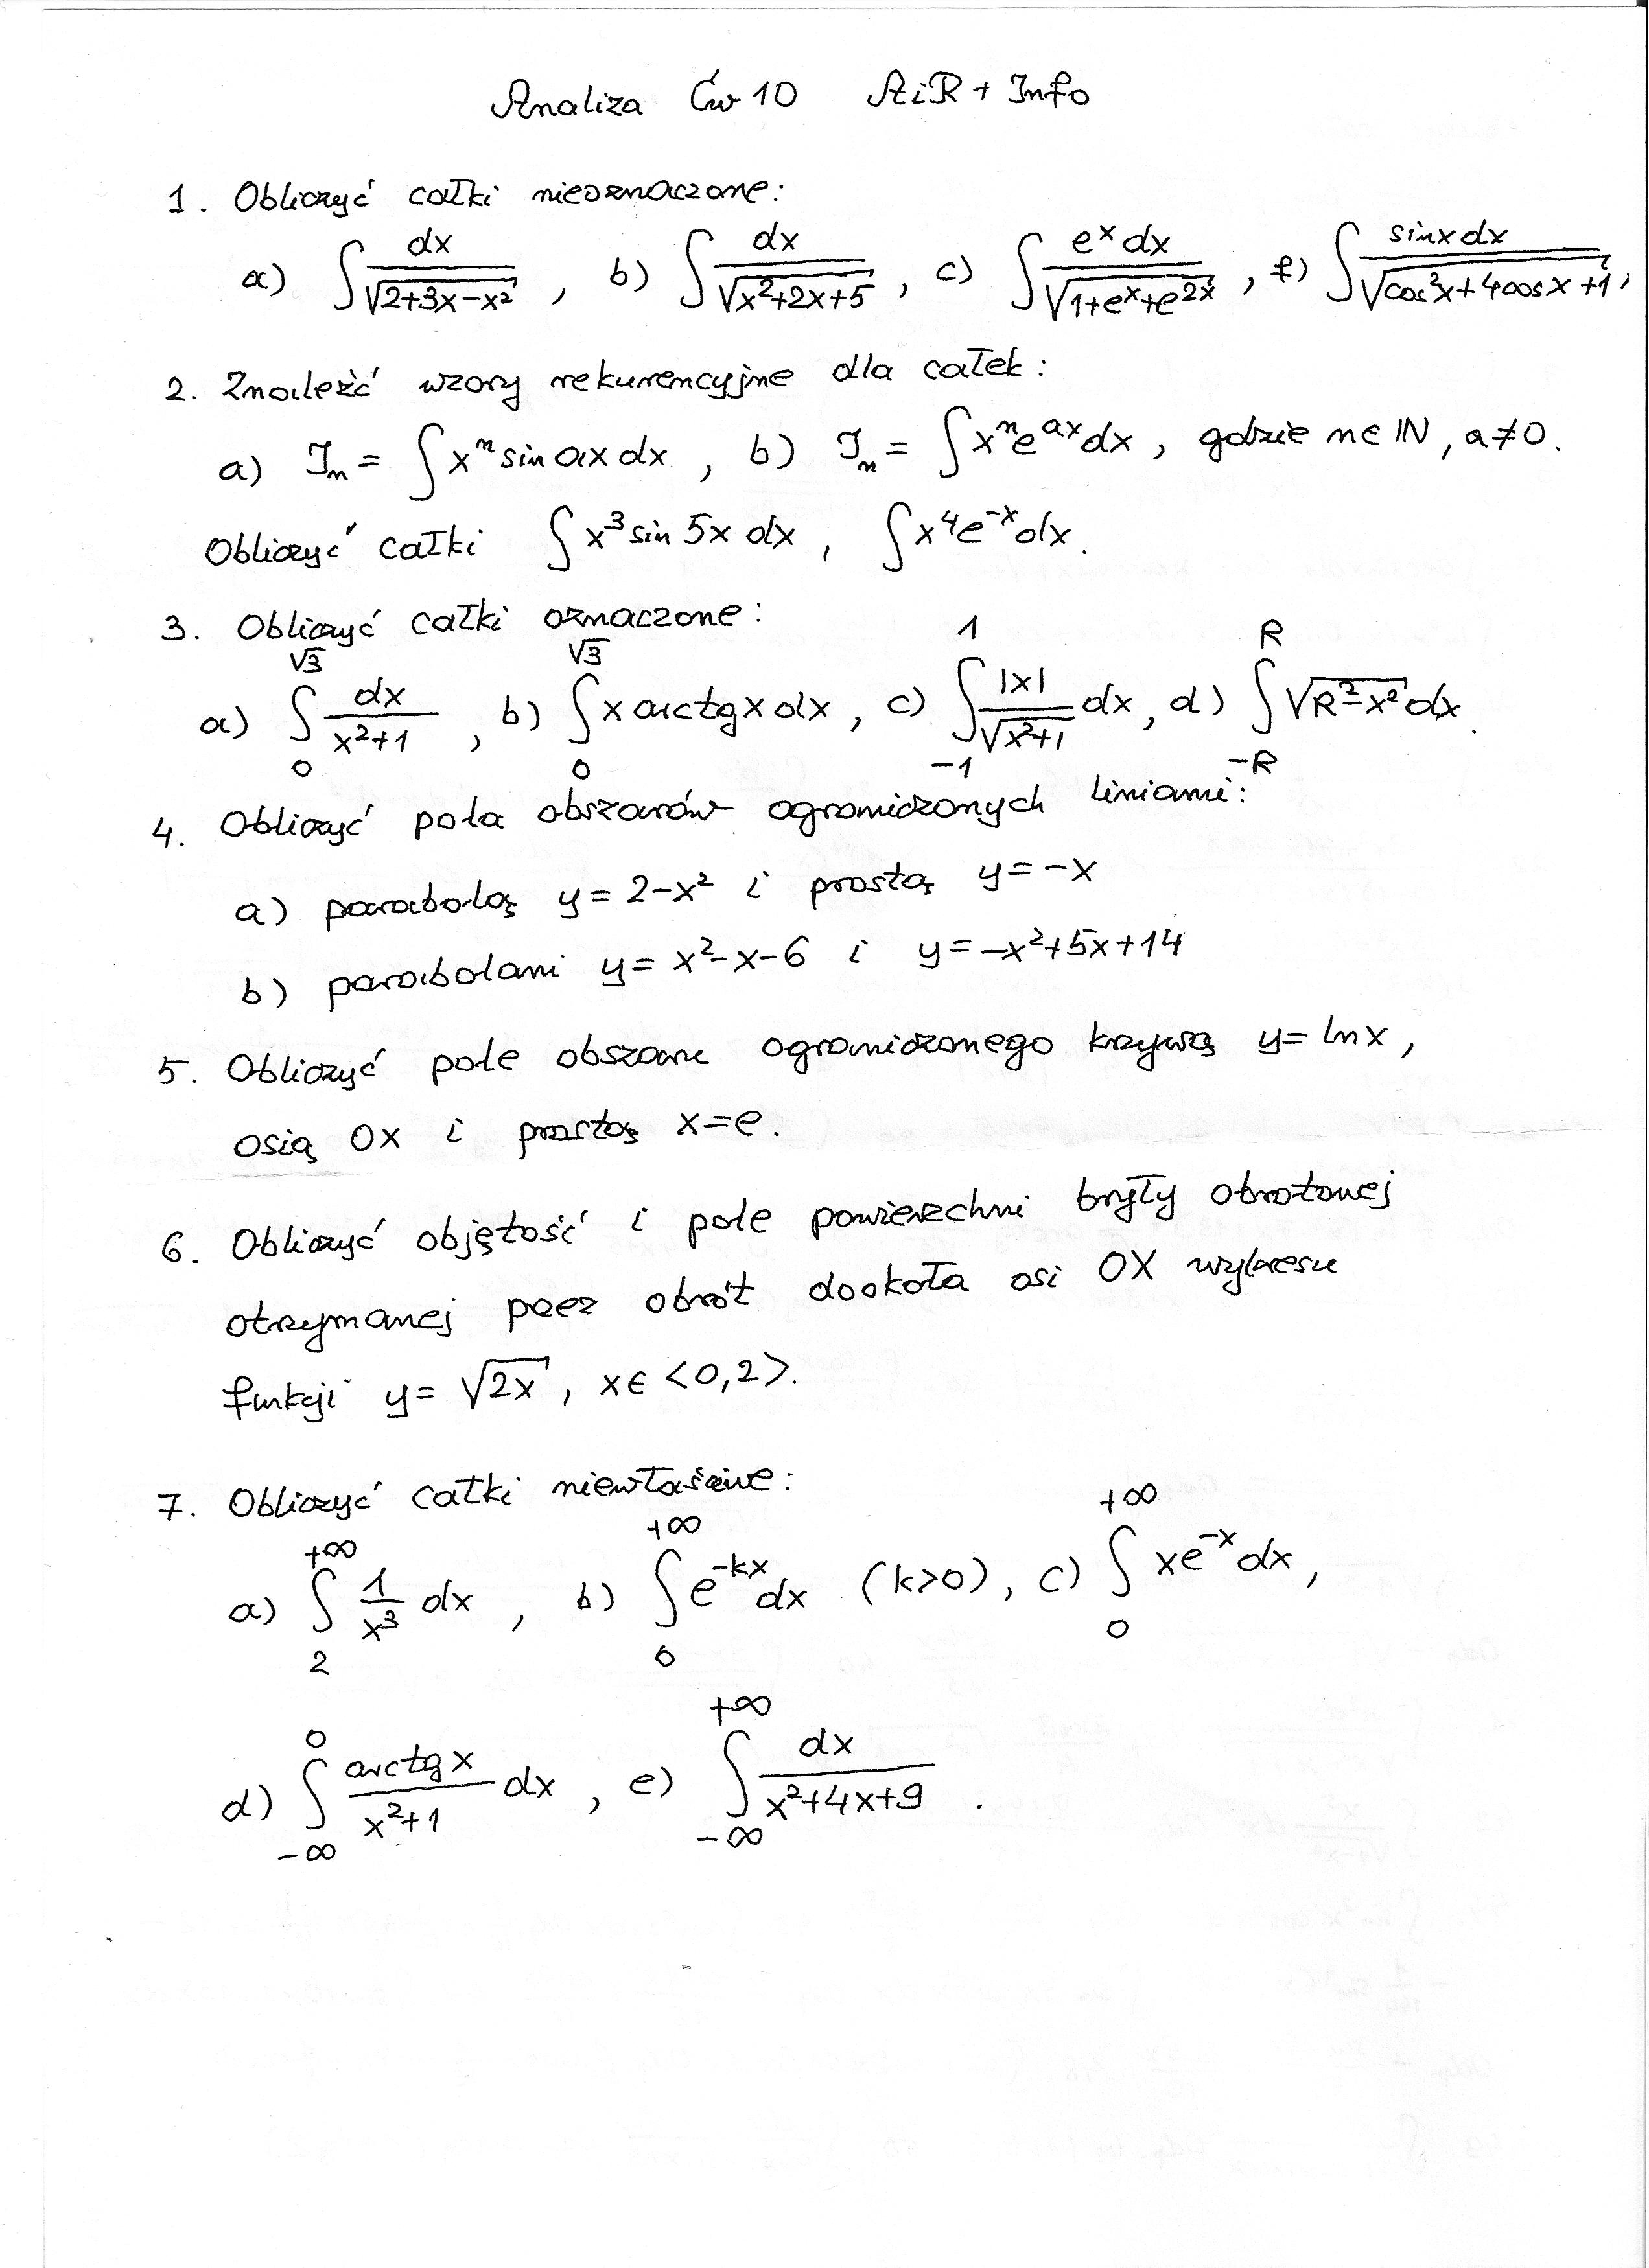 Analiza Ćw 10 AiR + Info
1. Obliczyć całki nieoznaczone:
a) ∫ dx/√(2+3x-x²) , b) ∫ dx/√(x²+2x+5) , c) ∫ eˣdx/√(1+eˣ+e²ˣ) , f) ∫ sinx dx/√(cos²x+4cosx+1) ,
2. Znaleźć wzory rekurencyjne dla całek:
a) Iₙ = ∫ xⁿ sin ax dx , b) Iₙ = ∫ xⁿe^{ax}dx , gdzie n∈ℕ, a≠0.
Obliczyć całki ∫ x³ sin 5x dx , ∫ x⁴e⁻ˣdx.
3. Obliczyć całki oznaczone:
a) ∫_0^{√3} dx/(x²+1) , b) ∫_0^{√3} x arctgx dx , c) ∫_{-1}^{1} |x|/√(x²+1) dx , d) ∫_{-R}^{R} √(R²-x²) dx .
4. Obliczyć pola obszarów ograniczonych liniami:
a) parabolą y = 2-x² i prostą y = -x
b) parabolami y = x²-x-6 i y = -x²+5x+14
5. Obliczyć pole obszaru ograniczonego krzywą y = lnx ,
osią OX i prostą x=e.
6. Obliczyć objętość i pole powierzchni bryły obrotowej
otrzymanej przez obrót dookoła osi OX wykresu
funkcji y = √(2x) , x∈<0,2>.
7. Obliczyć całki niewłaściwe:
a) ∫_2^{+∞} 1/x³ dx , b) ∫_0^{+∞} e^{-kx}dx (k>0) , c) ∫_0^{+∞} xe⁻ˣdx ,
d) ∫_{-∞}^0 arctgx/(x²+1) dx , e) ∫_{-∞}^{+∞} dx/(x²+4x+9) .